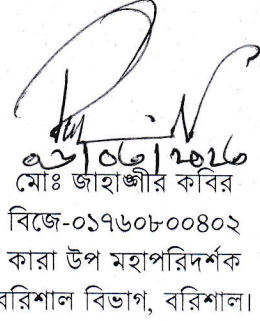 ০৯/০৬/২০২৬
মোঃ জাহাঙ্গীর কবির
বিজে-০১৭৬০৮০০৪০২
কারা উপ মহাপরিদর্শক
বরিশাল বিভাগ, বরিশাল।